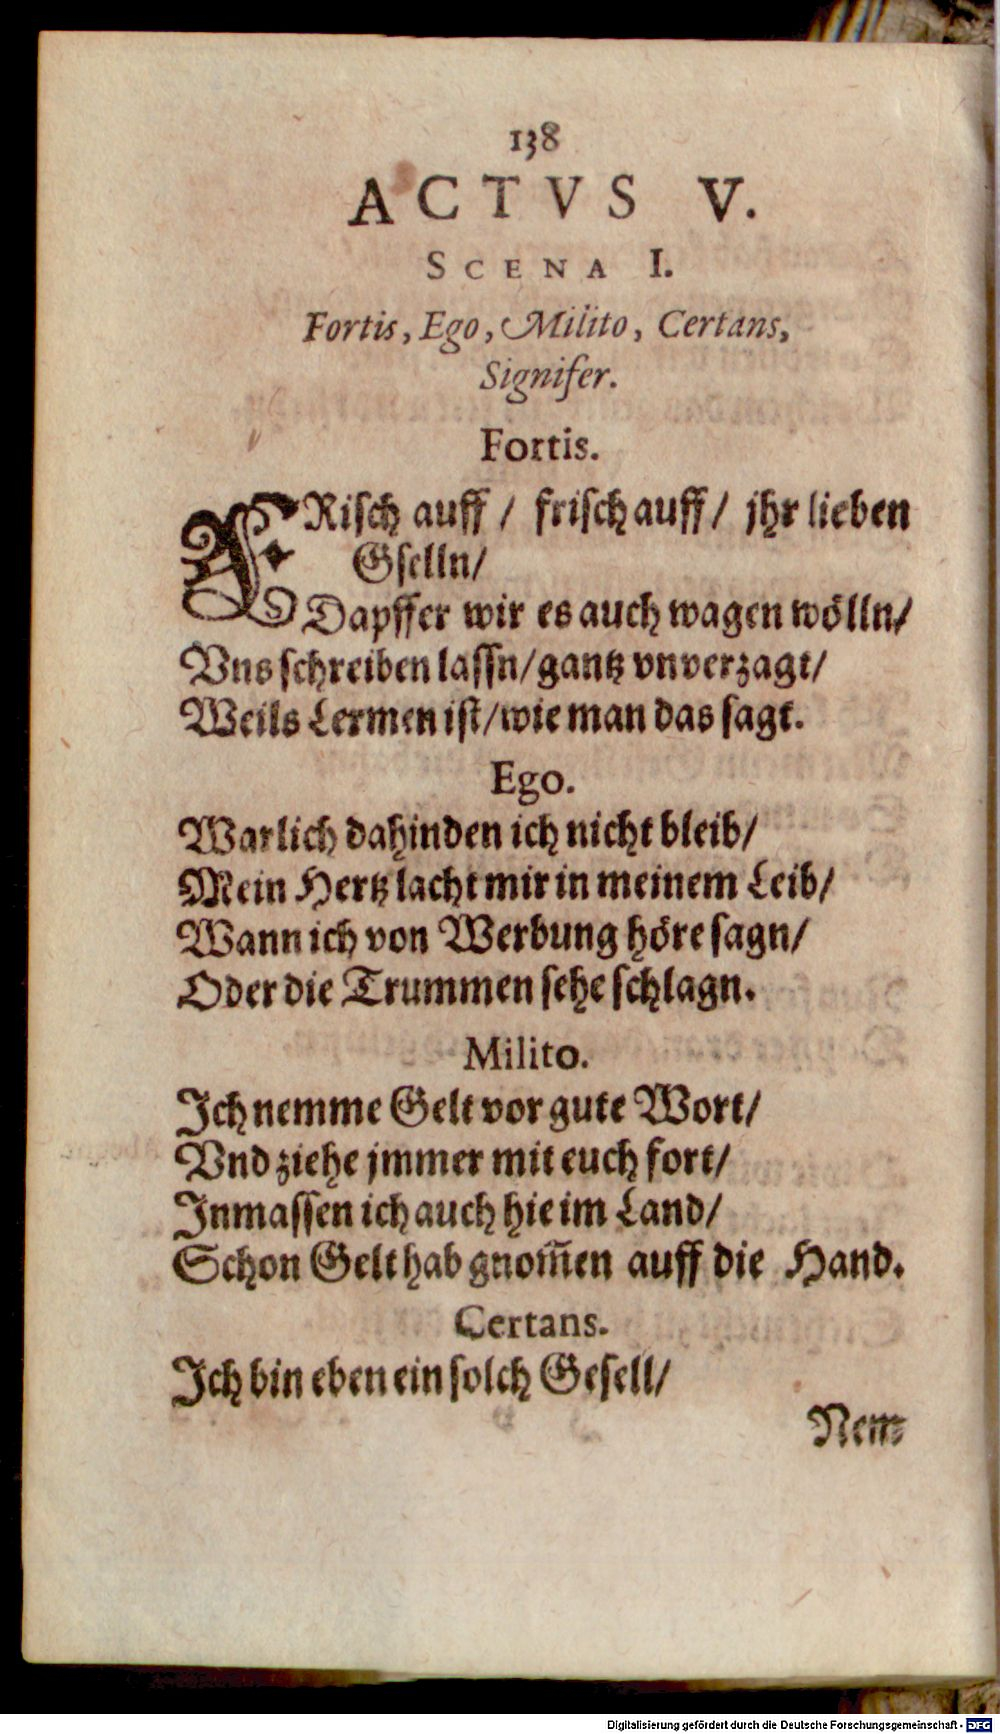 138
ACTVS V.
SCENA I.
Fortis, Ego, Milito, Certans,
Signifer.
Fortis.
FRisch auff / frisch auff / jhr lieben
Gselln /
Dapffer wir es auch wagen wölln /
Vns schreiben lassn / gantz vnverzagt /
Weils Lermen ist / wie man das sagt.
Ego.
Warlich dahinden ich nicht bleib /
Mein Hertz lacht mir in meinem Leib /
Wann ich von Werbung höre sagn /
Oder die Trummen sehe schlagn.
Milito.
Ich nemme Gelt vor gute Wort /
Vnd ziehe jmmer mit euch fort /
Inmassen ich auch hie im Land /
Schon Gelt hab gnom̄en auff die Hand.
Certans.
Ich bin eben ein solch Gesell /
Nem-
Digitalisierung gefördert durch die Deutsche Forschungsgemeinschaft - DFG